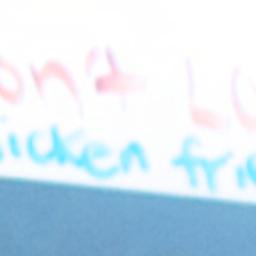 on't L
icken fri